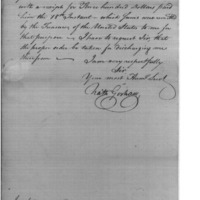 with a receipt for Three hundred dollars paid
him the 18th Instant - which sum was remitted
by the Treasurer of the United States to me for
that purpose - I have to request Sir, that
the proper order be taken for discharging me
therefrom
I am very respectfully
Sir
Your most Obed Servt